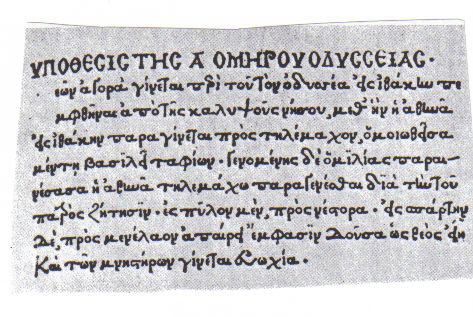 ΥΠΟΘΕΣΙΣ ΤΗΣ Α ΟΜΗΡΟΥ ΟΔΥΣΣΕΙΑΣ·
εῶν ἀγορὰ γίνεται περὶ τοῦ τὸν ὀδυσσέα εἰς ἰθάκην πε
μφθῆναι ἀπὸ τῆς καλυψοῦς νήσου, μεθ' ἣν ἡ ἀθηνᾶ
εἰς ἰθάκην παραγίνεται πρὸς τηλέμαχον, ὁμοιωθεῖσα
μέντῃ βασιλεῖ ταφίων· γενομένης δὲ ὁμιλίας παραι
νέσασα ἡ ἀθηνᾶ τηλεμάχω παραγενέσθαι διὰ τὴν τοῦ
πατρὸς ζήτησιν· ἐς πύλον μὲν, πρὸς νέστορα· εἰς σπάρτην
δὲ, πρὸς μενέλαον ἀπαίρει ἔμφασιν δοῦσα ὡς θεὸς εἴη
καὶ τῶν μνηστήρων γίνεται εὐωχία·